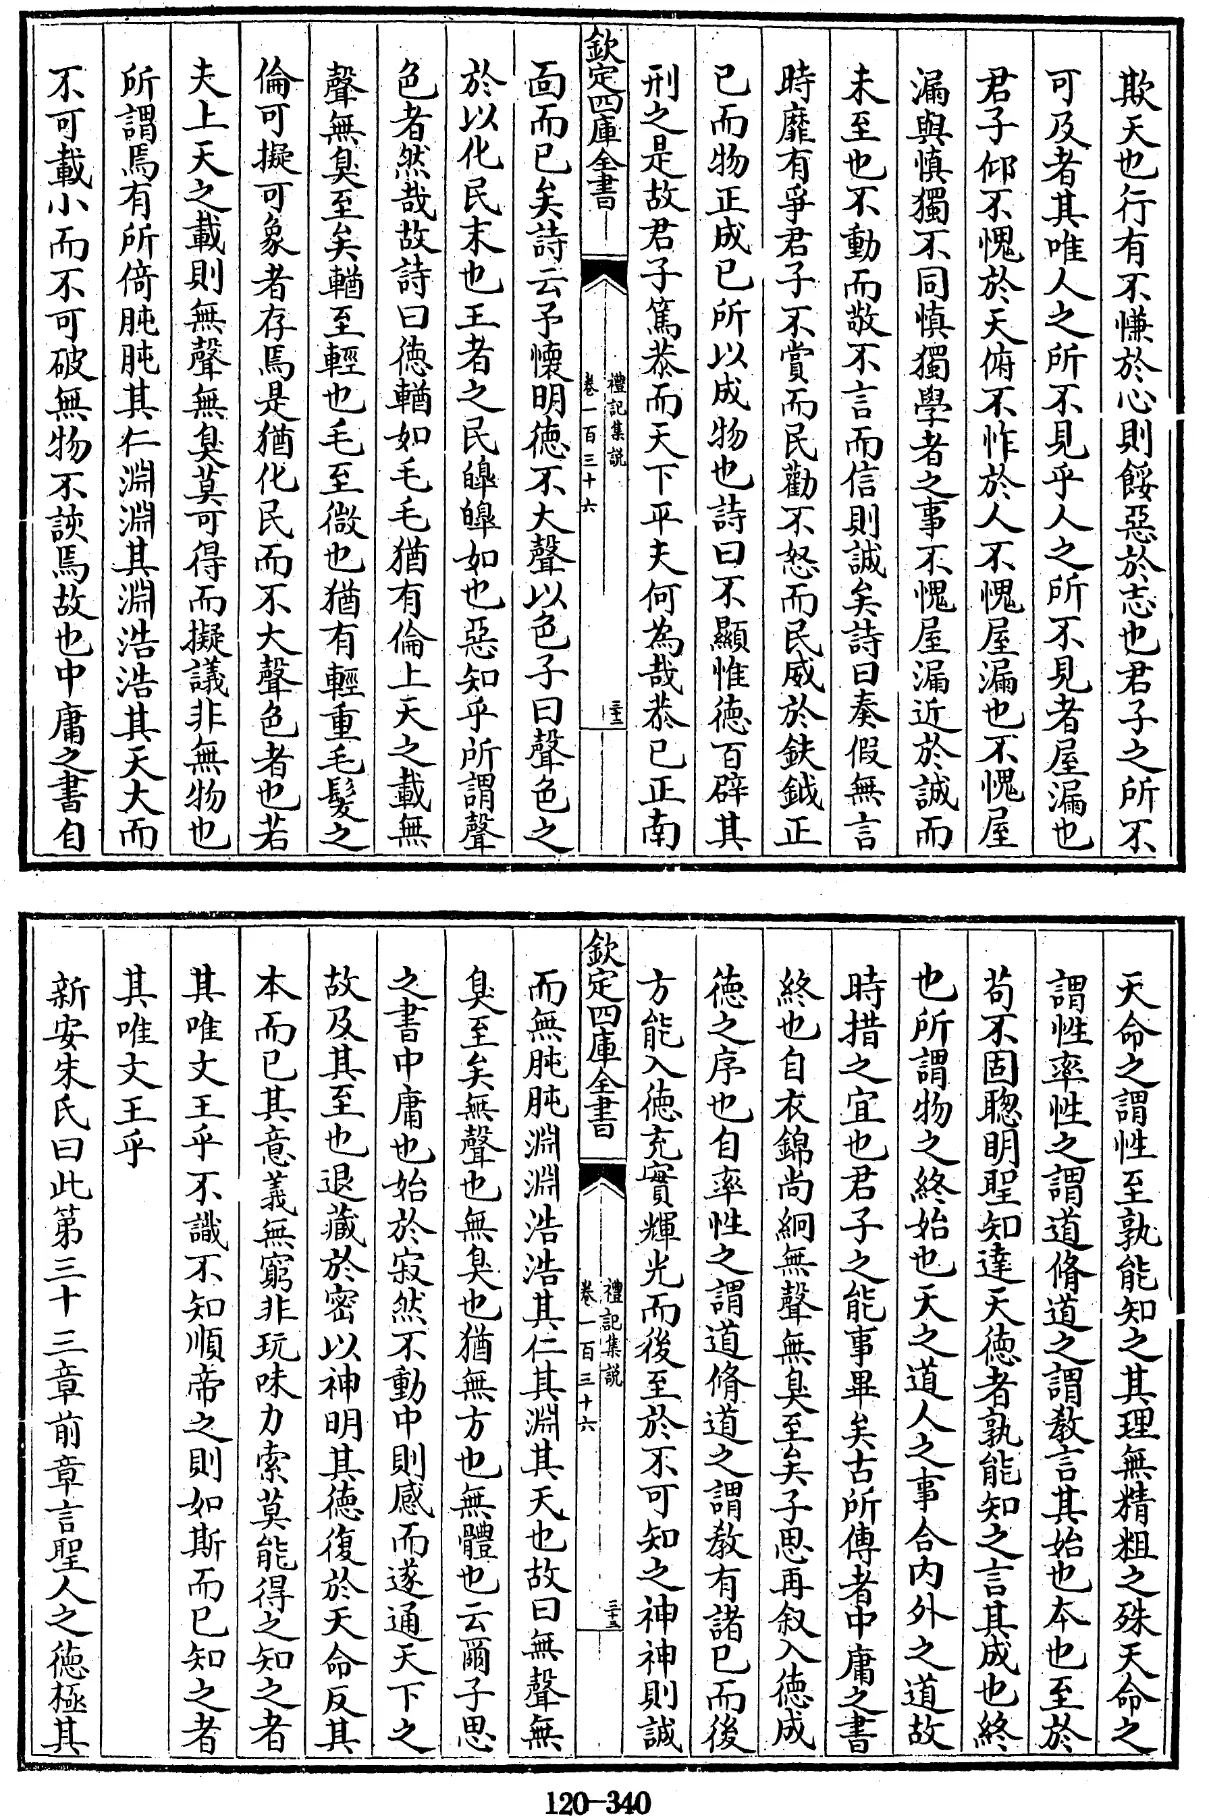 欺天也行有不慊於心則餒惡於志也君子之所不
可及者其唯人之所不見乎人之所不見者屋漏也
君子仰不愧於天俯不怍於人不愧屋漏也不愧屋
漏與慎獨不同慎獨學者之事不愧屋漏近於誠而
未至也不動而敬不言而信則誠矣詩曰奏假無言
時靡有爭君子不賞而民勸不怒而民威於鈇鉞正
已而物正成已所以成物也詩曰不顯惟徳百辟其
刑之是故君子篤恭而天下平夫何為哉恭已正南
欽定四庫全書
禮記集説
卷一百三十六
三十二
面而已矣詩云予懷明徳不大聲以色子曰聲色之
於以化民末也王者之民皥皥如也惡知乎所謂聲
色者然哉故詩曰徳輶如毛毛猶有倫上天之載無
聲無臭至矣輶至輕也毛至微也猶有輕重毛髪之
倫可擬可象者存焉是猶化民而不大聲色者也若
夫上天之載則無聲無臭莫可得而擬議非無物也
所謂焉有所倚肫肫其仁淵淵其淵浩浩其天大而
不可載小而不可破無物不該焉故也中庸之書自
天命之謂性至孰能知之其理無精粗之殊天命之
謂性率性之謂道脩道之謂教言其始也本也至於
苟不固聰明聖知達天徳者孰能知之言其成也終
也所謂物之終始也天之道人之事合内外之道故
時措之宜也君子之能事畢矣古所傳者中庸之書
終也自衣錦尚絅無聲無臭至矣子思再叙入徳成
徳之序也自率性之謂道脩道之謂教有諸已而後
方能入徳充實輝光而後至於不可知之神神則誠
欽定四庫全書
禮記集説
卷一百三十六
三十三
而無肫肫淵淵浩浩其仁其淵其天也故曰無聲無
臭至矣無聲也無臭也猶無方也無體也云爾子思
之書中庸也始於寂然不動中則感而遂通天下之
故及其至也退藏於密以神明其徳復於天命反其
本而已其意義無窮非玩味力索莫能得之知之者
其唯文王乎不識不知順帝之則如斯而已知之者
其唯文王乎
新安朱氏曰此第三十三章前章言聖人之徳極其
120-340